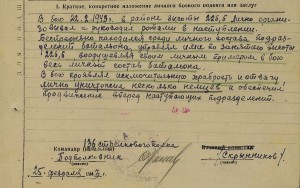 I. Краткое, конкретное изложение личного боевого подвига или заслуг
В бою 22.2.1943г. в районе высоты 225,6 лично органи-
зовал и руководил ротами в наступлении.
Беспрерывно находился среди личного состава подраз-
делений батальона, управляя ими по занятию высоты
225,6 воодушевляя своим примером в бою
весь личный состав батальона.
В бою проявил исключительную храбрость и отвагу
лично уничтожив несколько немцев и обеспечил
продвижение вперед наступающих подразделений.
136 стрелкового полка
Командир
(начальник)
Подполковник
Скрынников
25 февраля